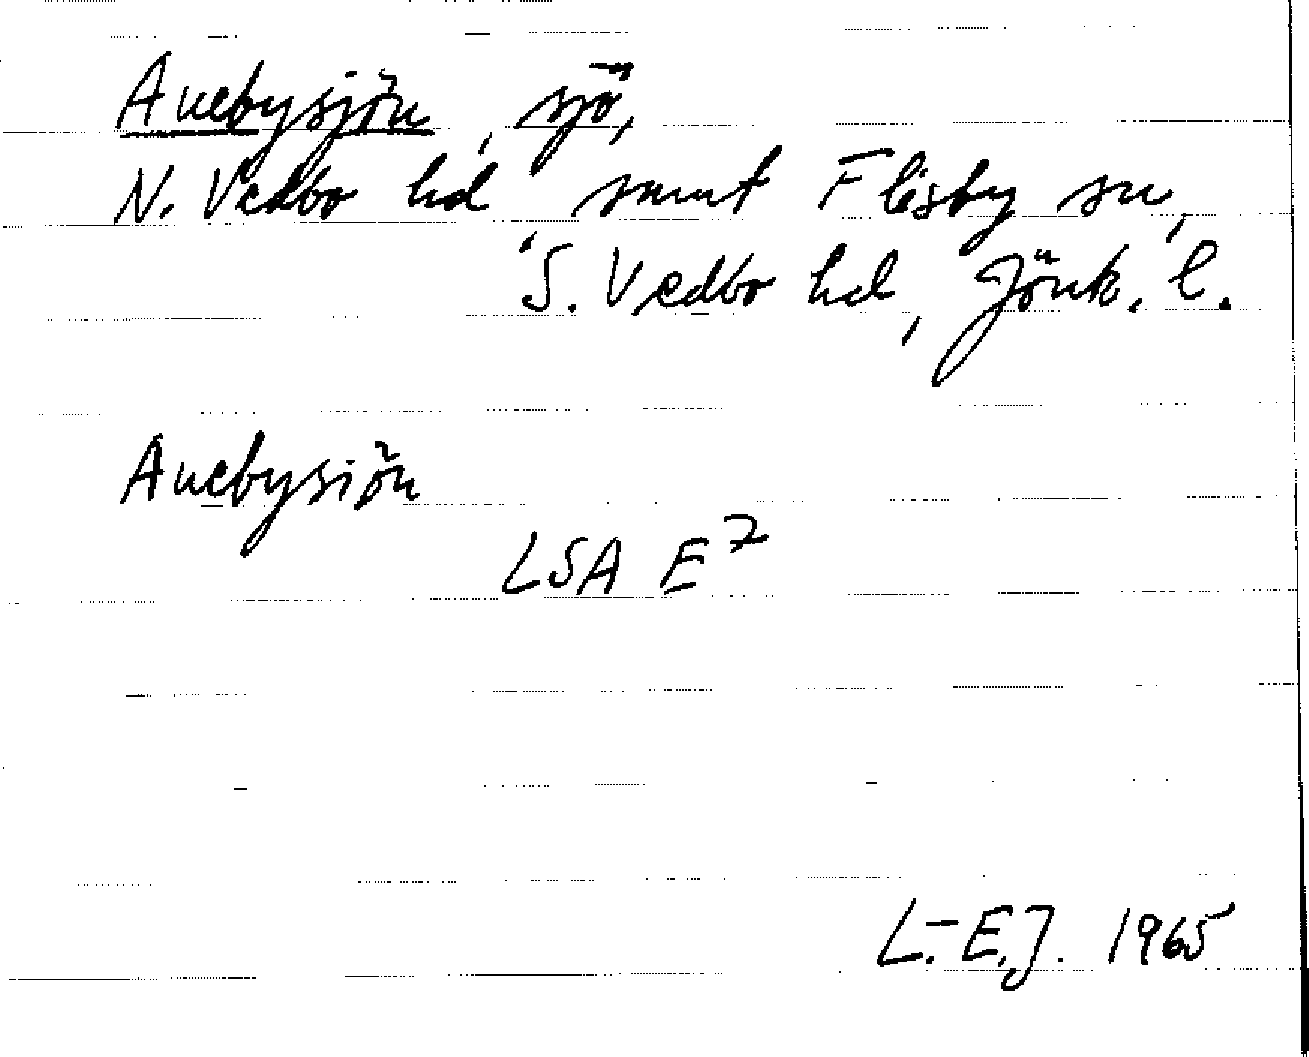 Anebysjön, sjö,
N. Vedbo hd samt Flisby sn,
S. Vedbo hd, Jönk. l.
Anebysiön
LSA E7
L.-E.J. 1965